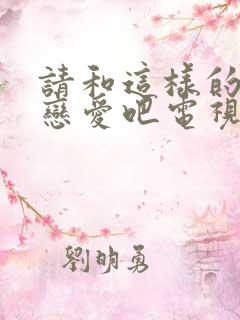 請和這樣的
戀愛吧電視
劉明勇